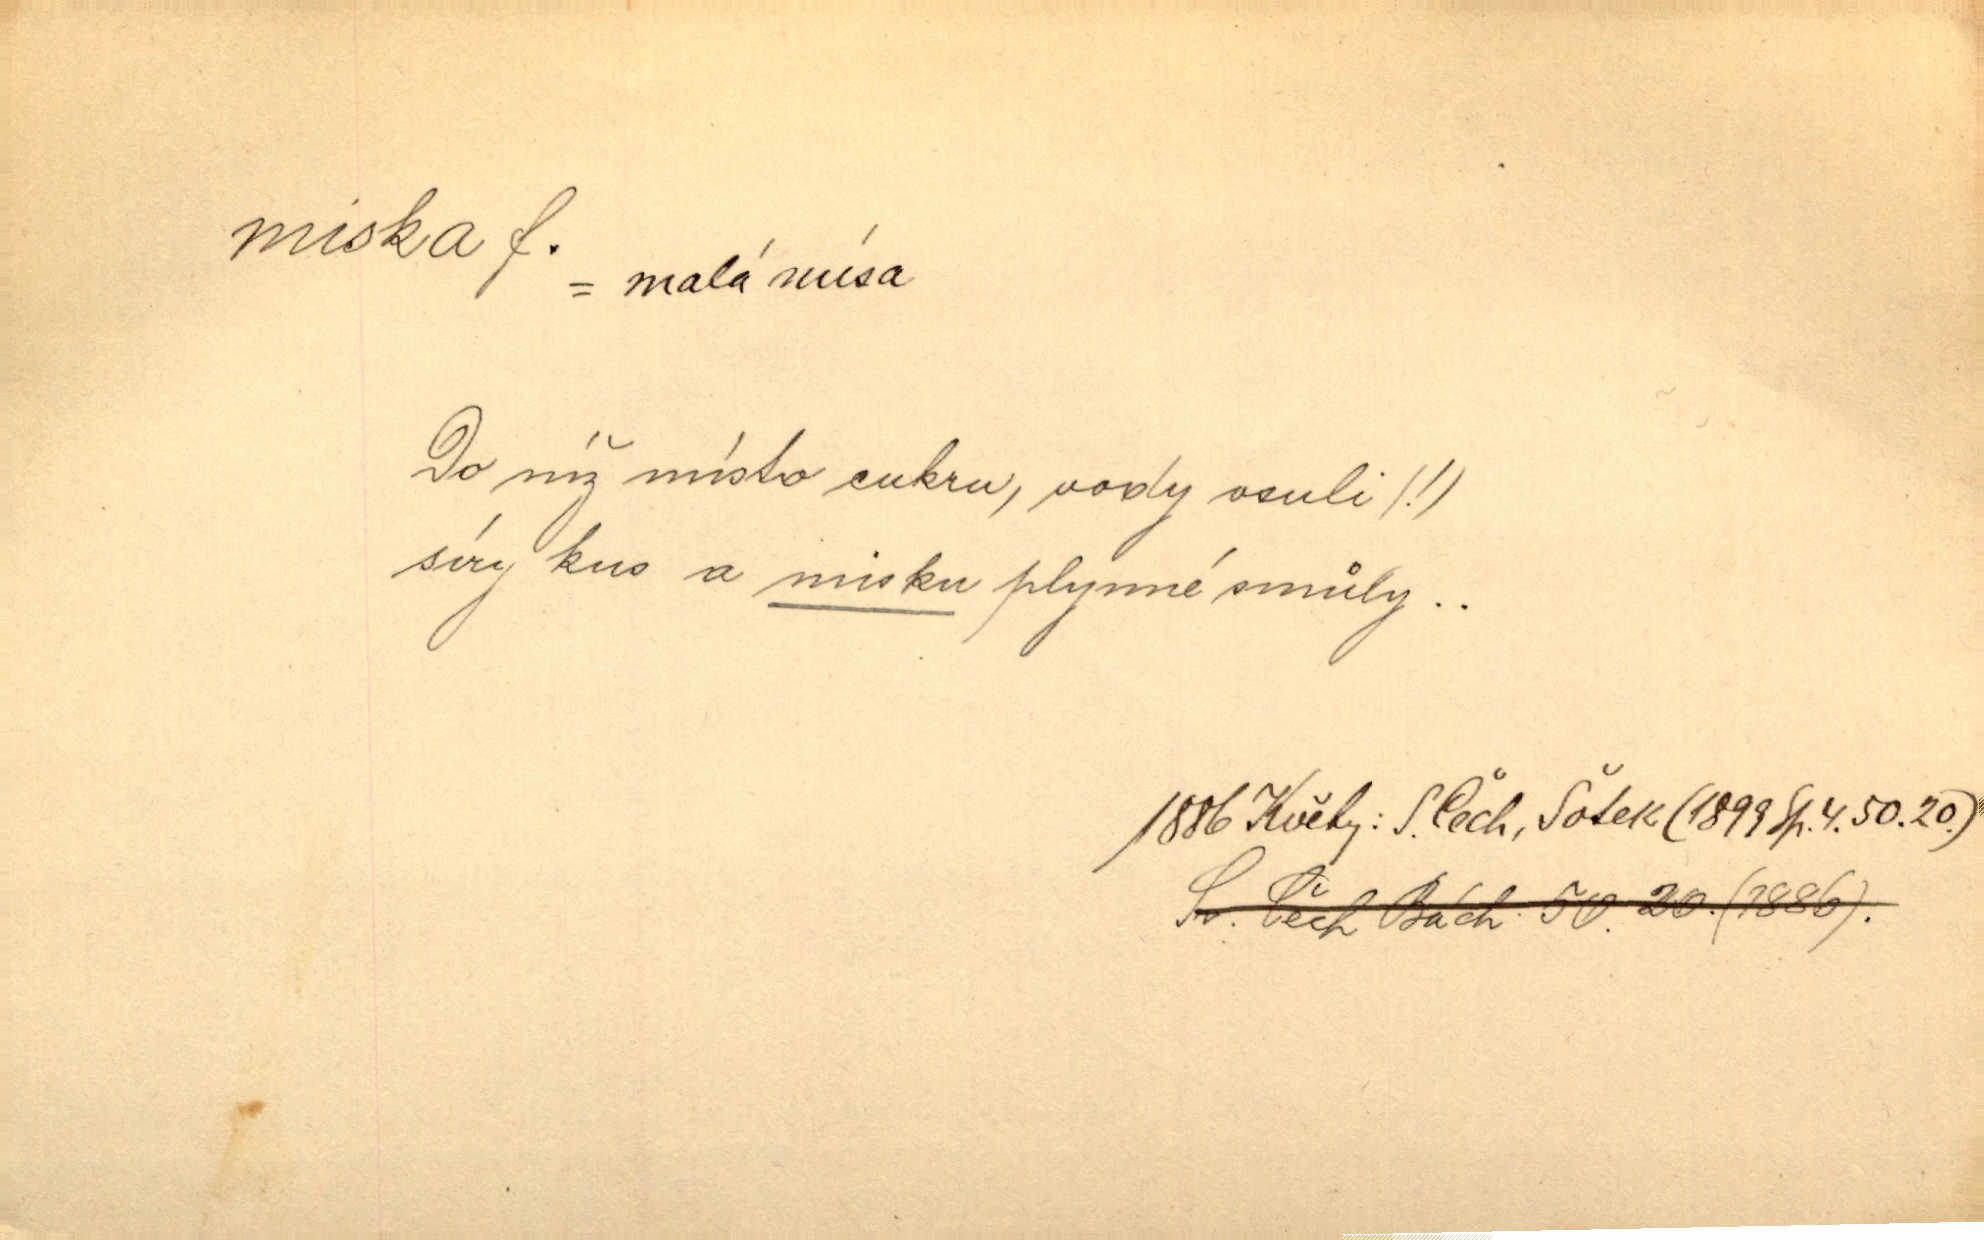 miska f.
= malá mísa
Do níž místo cukru, vody vsuli (!)
síry kus a misku plynné smůly . .
1886 Květy: S. Čech, Šotek (1899 Sp. 4. 50. 20.)
Sv. Čech Bách. 50. 20. (1886).